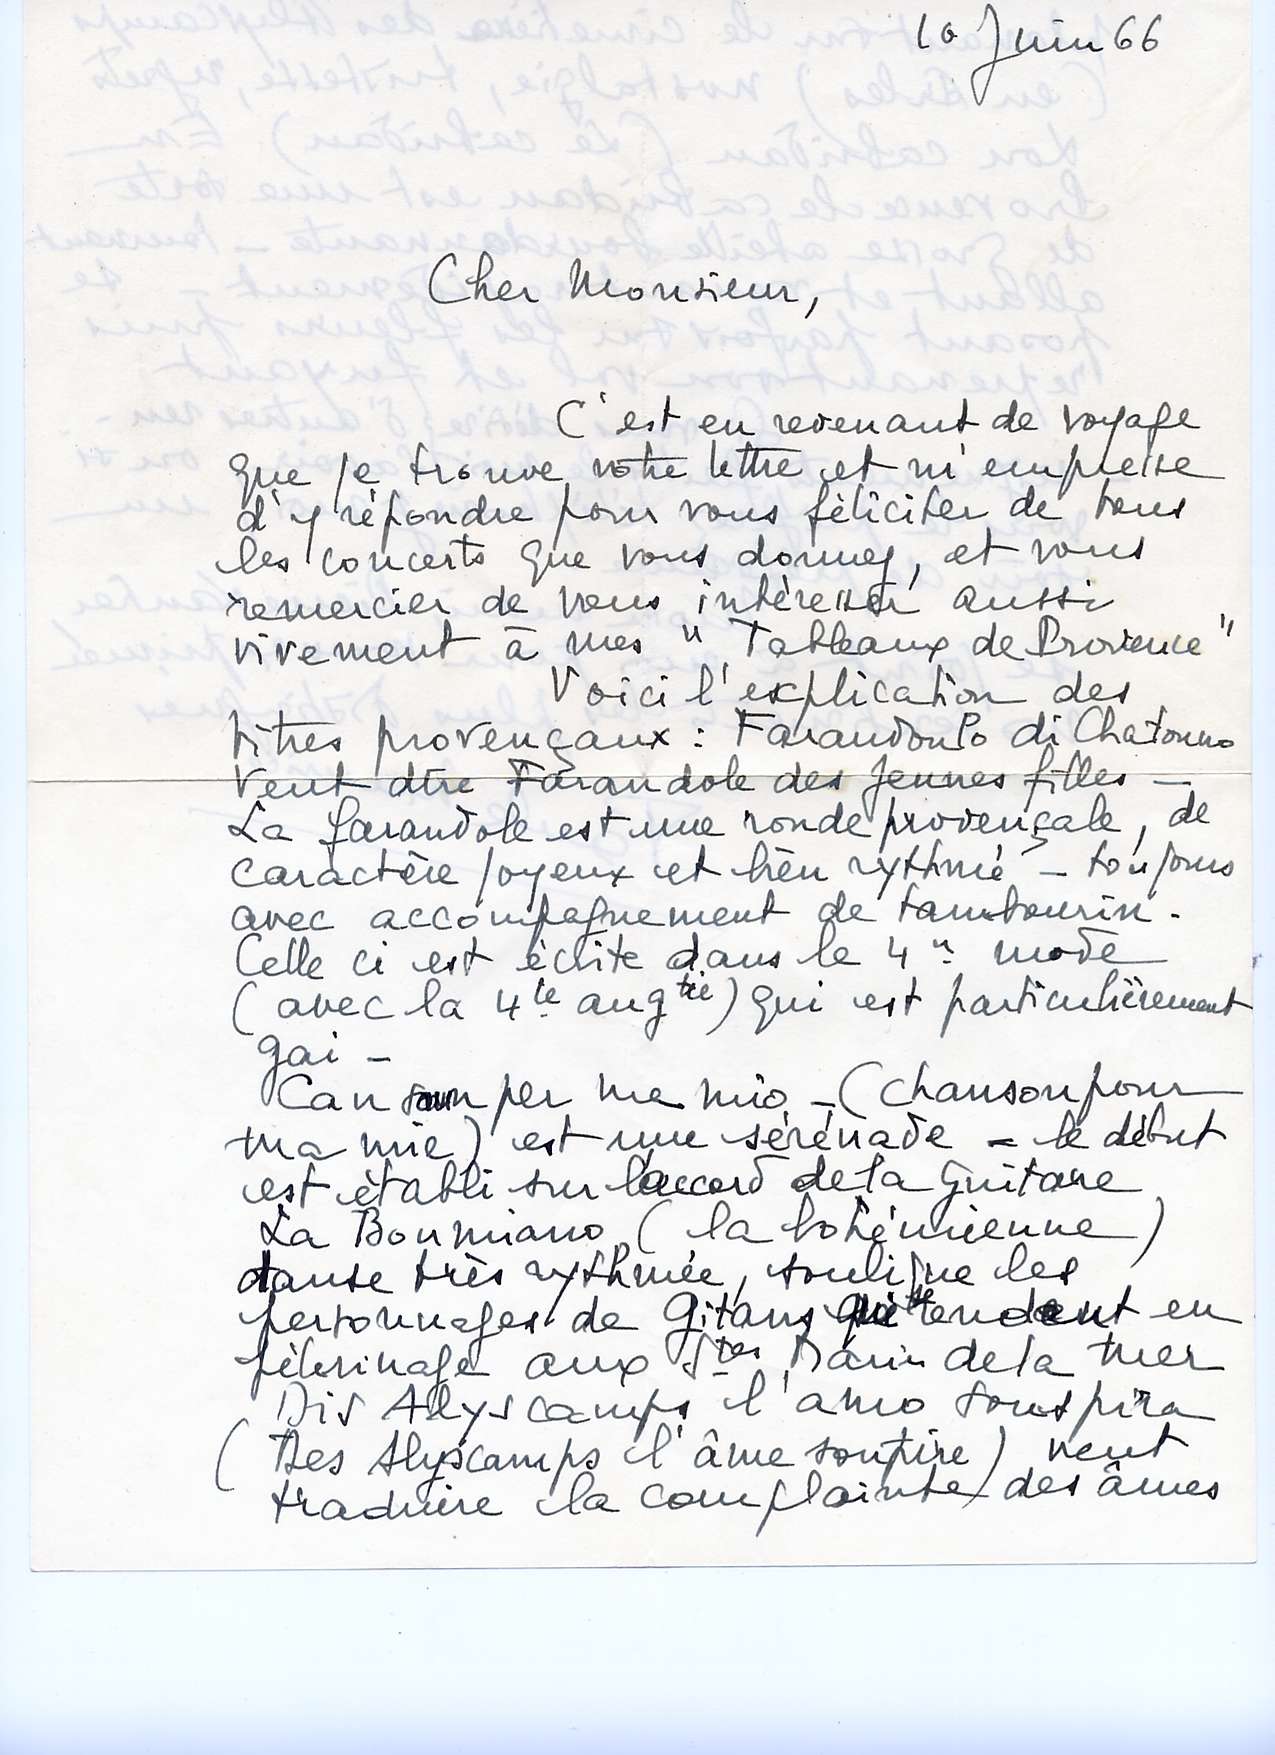 10 Juin 66
Cher Monsieur,
C'est en revenant de voyage
que je trouve votre lettre et m'empresse
d'y répondre pour vous féliciter de tous
les concerts que vous donnez, et vous
remercier de vous intéresser aussi
vivement à mes "Tableaux de Provence"
Voici l'explication des
titres provençaux : Farandoulo di Chatouno
veut dire Farandole des jeunes filles —
La farandole est une ronde provençale, de
caractère joyeux et bien rythmé — toujours
avec accompagnement de tambourin.
Celle ci est écrite dans le 4e mode
(avec la 4te augtée) qui est particulièrement
gai —
Cansoun per ma mio — (chanson pour
ma mie) est une sérénade — le début
est établi sur l'accord de la guitare
La Boumiano (la bohémienne)
danse très rythmée, souligne les
personnages de Gitans en
pèlerinage aux Stes Maries de la Mer
Dis Alyscamps l'amo souspira
(Des Alyscamps l'âme soupire) veut
traduire la complainte des âmes